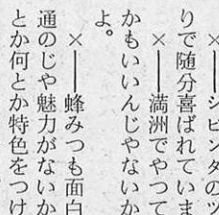 ×――ジビンダのツ
りで随分喜ばれていま
×――満洲でやつて
かもいいんじやないか
よ。
×――蜂みつも面白
通のじや魅力がないか
とか何とか特色をつけ